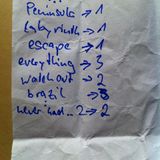 Peninsula → 1
labyrinth → 1
escape → 1
everything → 3
walkout → 2
brazil → 3
never had.. 2 → 2